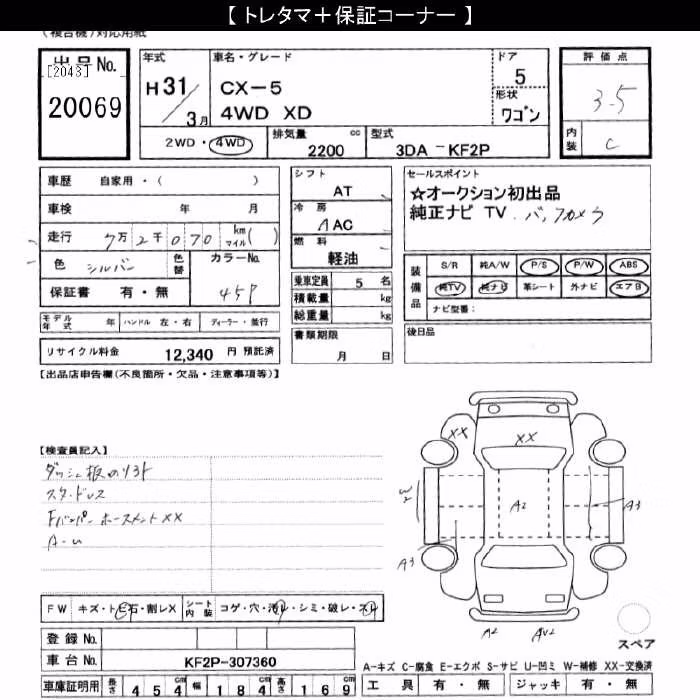 【 トレタマ＋保証コーナー 】
(複合機)対応用紙
出品No.
[2043]
20069
年式
H 31/3月
車名・グレード
CX-5
4WD XD
ドア
5
形状
ワゴン
評価点
3.5
内装
C
2WD・4WD
排気量 cc
2200
型式
3DA - KF2P
車歴 自家用・( )
車検 年 月
走行 7万2千070 km マイル( )
色 シルバー
色替
カラーNo.
45P
保証書 有・無
シフト
AT
冷房
AAC
燃料
軽油
乗車定員 5 名
積載量 kg
総重量 kg
セールスポイント
☆オークション初出品
純正ナビ TV. バックカメラ
装備品
S/R 純A/W P/S P/W ABS
純TV 純ナビ 革シート 外ナビ エアB
ナビ型番：
モデル年式 年 ハンドル 左・右 ディーラー・並行
リサイクル料金 12,340 円 預託済
書類期限
月 日
後日品
【出品店申告欄(不良箇所・欠品・注意事項等)】
【検査員記入】
ダッシュ板のリフト
スタッドレス
Fバンパー ホースメントXX
A-U
XX
XX
W2
A2
A3
A3
A2
AU2
スペア
FW キズ・トビ石・割レX
シート内装 コゲ・穴・汚レ・シミ・破レ・スレ
登録No.
車台No. KF2P-307360
車庫証明用 長さ 454 cm 幅 184 cm 高さ 169 cm
A-キズ C-腐食 E-エクボ S-サビ U-凹ミ W-補修 XX-交換済
工具 有・無 ジャッキ 有・無